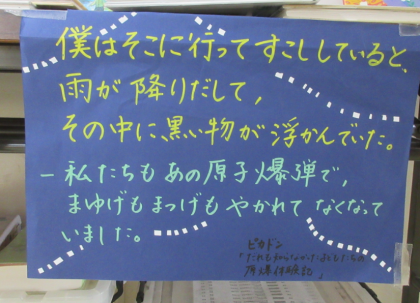 僕はそこに行ってすこししていると、
雨が降りだして、
その中に、黒い物が浮かんでいた。
－私たちもあの原子爆弾で、
まゆげもまつげもやかれてなくなって
いました。
ピカドン
「だれも知らなかった子どもたちの
原爆体験記」